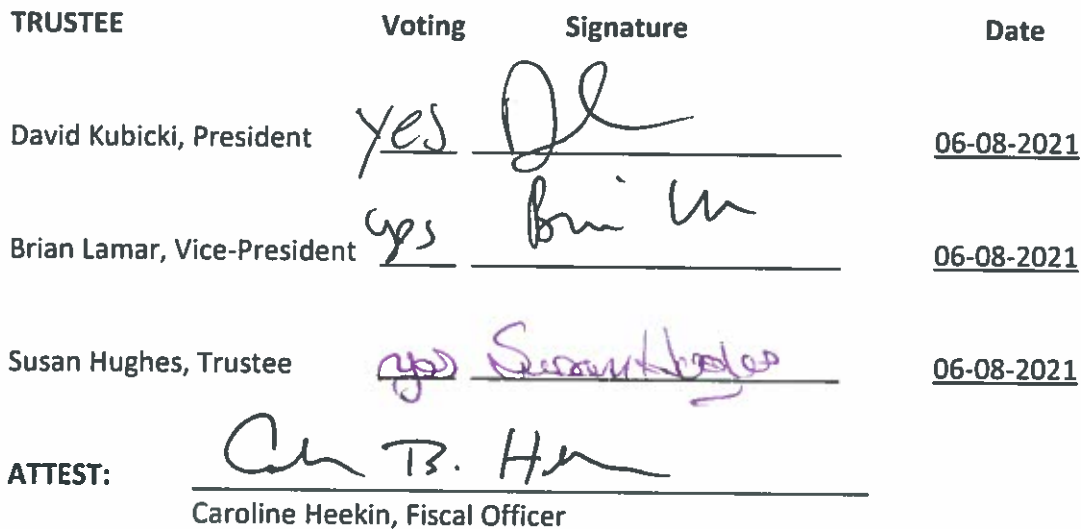 TRUSTEE Voting Signature Date
David Kubicki, President yes 06-08-2021
Brian Lamar, Vice-President yes 06-08-2021
Susan Hughes, Trustee yes Susan Hughes 06-08-2021
ATTEST: B.
Caroline Heekin, Fiscal Officer